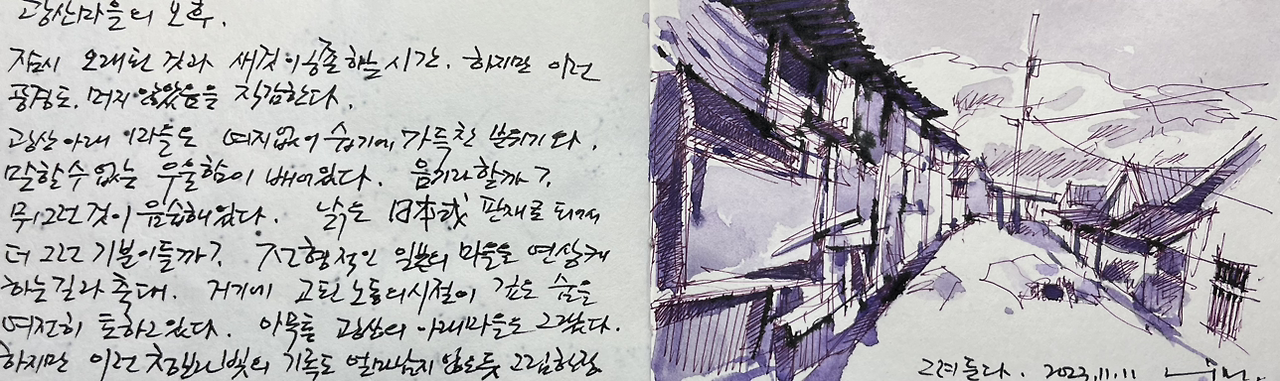 광산마을의 오후.
잠시 오래된 것과 새것이 공존하는 시간. 하지만 이런
풍경도. 머지않았음을 직감한다.
광산 아래 이라들도 여지없이 습기에 가득찬 분위기와.
말할수 없는 우울함이 배어있다. 음기라 할까?
뭐 그런것이 음습해있다. 낡은 日本式 판재로 되어서
더 그런 기분이 들까?. 전형적인 일본의 마을을 연상케
하는 길과 축대. 거기에 고된 노동의 시절이 깊은 숨을
여전히 토하고 있다. 아무튼 광산의 아래마을은 그랬다.
하지만 이런 빛의 기록도 얼마남지 않은듯 그림현장
그려 둘다. 2023.11.11